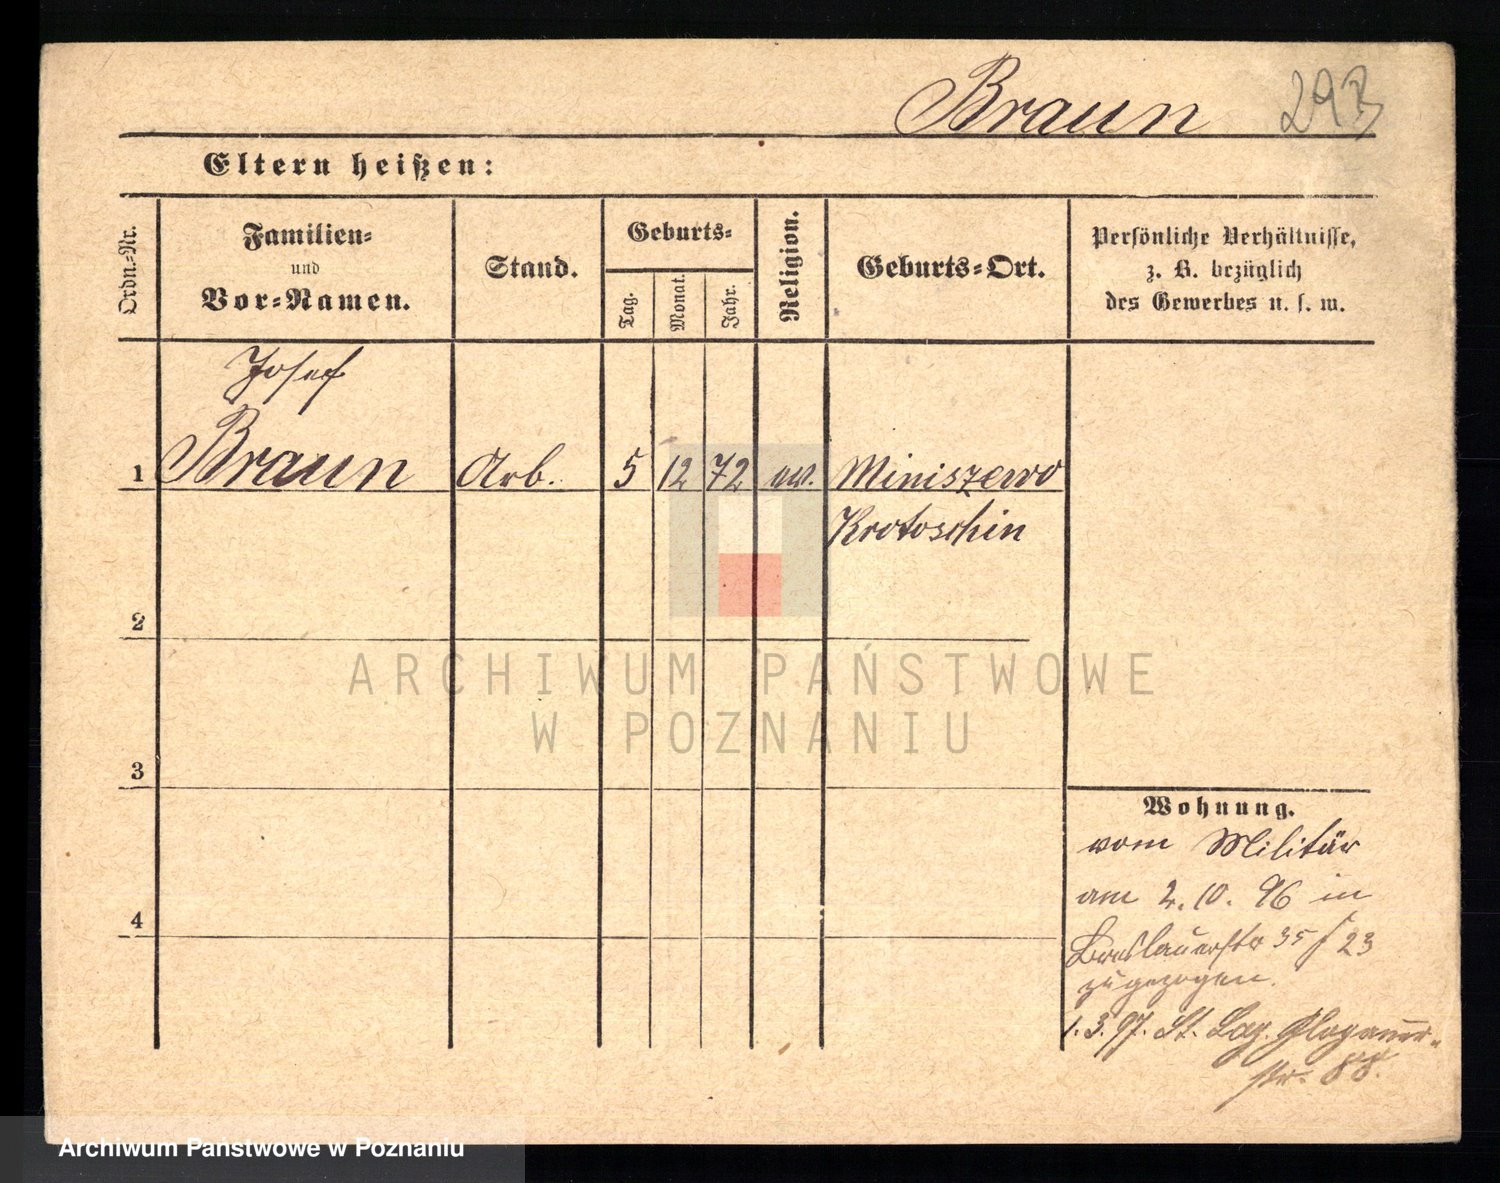 Braun 293
Eltern heißen:
Ordn.=Nr.
Familien=
und
Vor=Namen.
Stand.
Geburts=
Tag.
Monat.
Jahr.
Religion.
Geburts=Ort.
Persönliche Verhältnisse,
z. B. bezüglich
des Gewerbes u. s. w.
Josef
1 Braun Arb. 5 12 72 ev. Miniszewo
Krotoschin
2
3
4
Wohnung.
vom Militär
am 2. 10. 96 in
Breslauerstr 35 / 23
zugezogen.
1. 3. 97. St. Laz. Glogauer-
str. 88.
ARCHIWUM PAŃSTWOWE
W POZNANIU
Archiwum Państwowe w Poznaniu